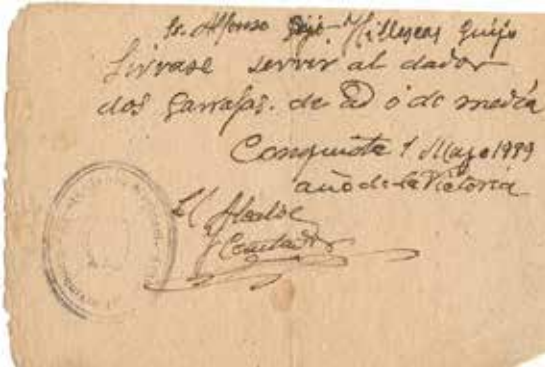 Sr. Alfonso Illescas Quijo
Sirvase servir al dador
dos garrafas. de @ ó de media
Conquista 1 Mayo 1939
año de la Victoria
El Alcalde